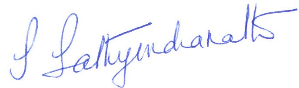 S Sathyendranath